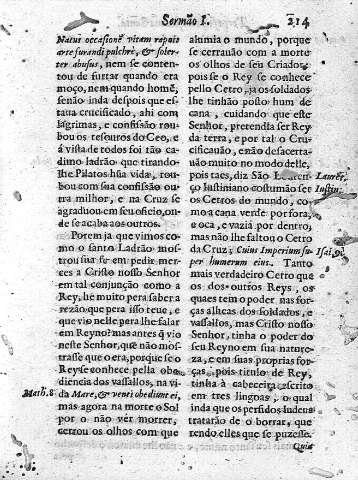 Sermão I.
214
Natus occasionẽ vitam rapuis
arte furandi pulchrè, & soler-
ter abusus, nem se conten-
tou de furtar quando era
moço, nem quando homẽ,
senão inda despois que es-
taua crucificado, ahi com
lagrimas, e confissão rou-
bou os tesouros do Ceo, e
á vista de todos foi tão ca-
dimo ladrão que tirando-
lhe Pilatos hũa vida, rou-
bou com sua confissão ou-
tra milhor, e na Cruz se
agraduou em seu oficio, on-
de se acaba aos outros.
Porem ja que vimos co-
mo o santo Ladrão mos-
trou sua fé em pedir mer-
ces a Christo nosso Senhor
em tal conjunção como a
Rey, he muito pera saber a
rezão que pera isso teue, e
que vio nelle pera lhe falar
em Reyno? mas antes q̃ vio
neste Senhor, que não mos-
trasse que o era, porque se o
Rey se conhece pella obe-
diencia dos vassallos, na vi-
Math. 8.
da Mare, & venti obediunt ei,
mas agora na morte o Sol
por o não ver morrer,
cerrou os olhos com que
alumia o mundo, porque
se cerrauão com a morte
os olhos de seu Criador,
pois se o Rey se conhece
pello Cetro, ja os soldados
lhe tinhão posto hum de
cana, cuidando que este
Senhor, pretendia ser Rey
da terra, e por tal o Cru-
cificauão, e não desacerta-
uão muito no modo delle,
pois taes, diz São Lauren-
Laurẽt,
ço Iustiniano costumão ser
Iustin;
os Cetros do mundo, co-
mo a cana verde por fora,
e oca, e vazia por dentro,
mas não lhe faltou o Cetro
da Cruz; Cuius Imperium su-
Isai, 9.
per humerum eius. Tanto
mais verdadeiro Cetro que
os dos outros Reys, os
quaes tem o poder nas for-
ças alheas dos soldados, e
vassallos, mas Christo nosso
Senhor, tinha o poder do
seu Reyno em sua nature-
za, e em suas proprias for-
ças, pois titulo de Rey,
tinha á cabeceira, escrito
em tres lingoas, o qual
inda que os perfidos Iudeus
tratarão de o borrar, que
rendo elles que se puzesse.
Quia